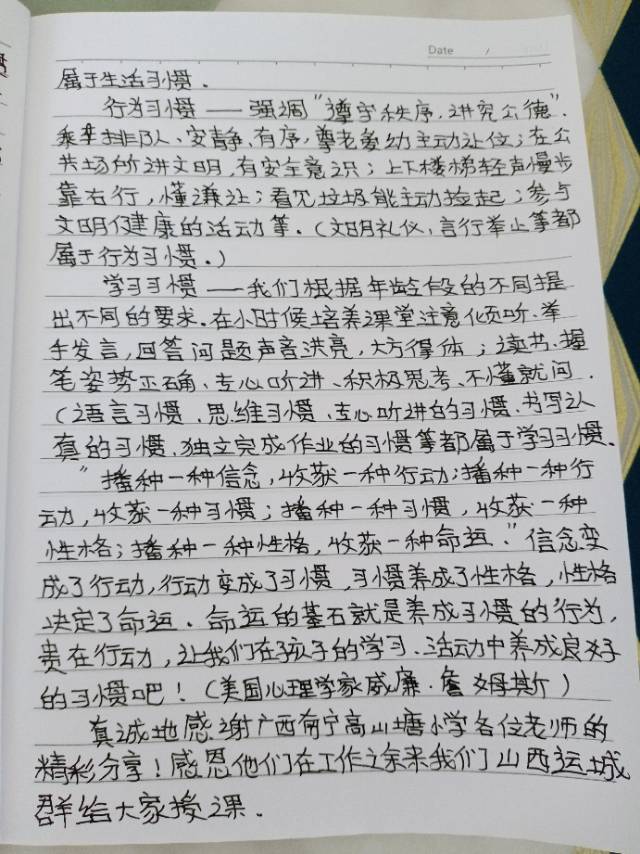 Date /
属于生活习惯.
行为习惯——强调"遵守秩序,讲究公德".
乘车排队、安静、有序,尊老爱幼主动让位;在公
共场所讲文明,有安全意识;上下楼梯轻声慢步
靠右行,懂谦让;看见垃圾能主动捡起;参与
文明健康的活动等.(文明礼仪,言行举止等都
属于行为习惯.)
学习习惯——我们根据年龄段的不同提
出不同的要求.在小时候培养课堂注意倾听、举
手发言,回答问题声音洪亮,大方得体;读书、握
笔姿势正确、专心听讲、积极思考、不懂就问.
(语言习惯、思维习惯、专心听讲的习惯、书写认
真的习惯、独立完成作业的习惯等都属于学习习惯.
"播种一种信念,收获一种行动;播种一种行
动,收获一种习惯;播种一种习惯,收获一种
性格;播种一种性格,收获一种命运."信念变
成了行动,行动变成了习惯,习惯养成了性格,性格
决定了命运.命运的基石就是养成习惯的行为,
贵在行动,让我们在孩子的学习、活动中养成良好
的习惯吧!(美国心理学家威廉·詹姆斯)
真诚地感谢广西南宁高山塘小学各位老师的
精彩分享!感恩他们在工作之余来我们山西运城
群给大家授课.